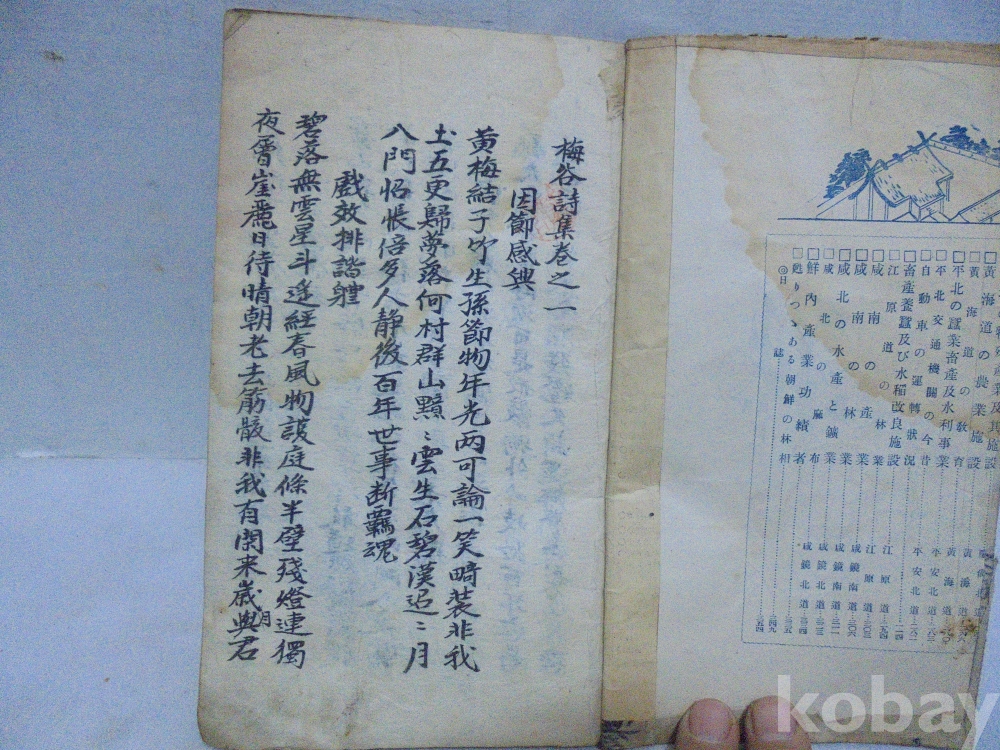 □黃海道の農業施設
□平北の蠶業畜産及水利事業
□平北交通機關の今昔
□自動車の運轉狀況
□畜産養蠶及び水稻改良施設
□江原道の林業 江原道
□咸南の産業 咸鏡南道
□咸南の林業
□咸北の水産と鑛業 咸鏡北道
□咸北の麻布 咸鏡北道
□鮮内産業功績者
□甦りつゝある朝鮮の林相
◎日誌
梅谷詩集卷之一
因節感興
黃梅結子竹生孫節物年光兩可論一笑畸裝非我
土五更歸夢落何村群山黯〻雲生石碧漢迢〻月
八門怊悵倍多人靜後百年世事斷羈魂
戲效排諧軆
碧落無雲星斗遙經春風物護庭條半壁殘燈連獨
夜層崖飛日待晴朝老去筋骸非我有閑來歲月與君
kobay